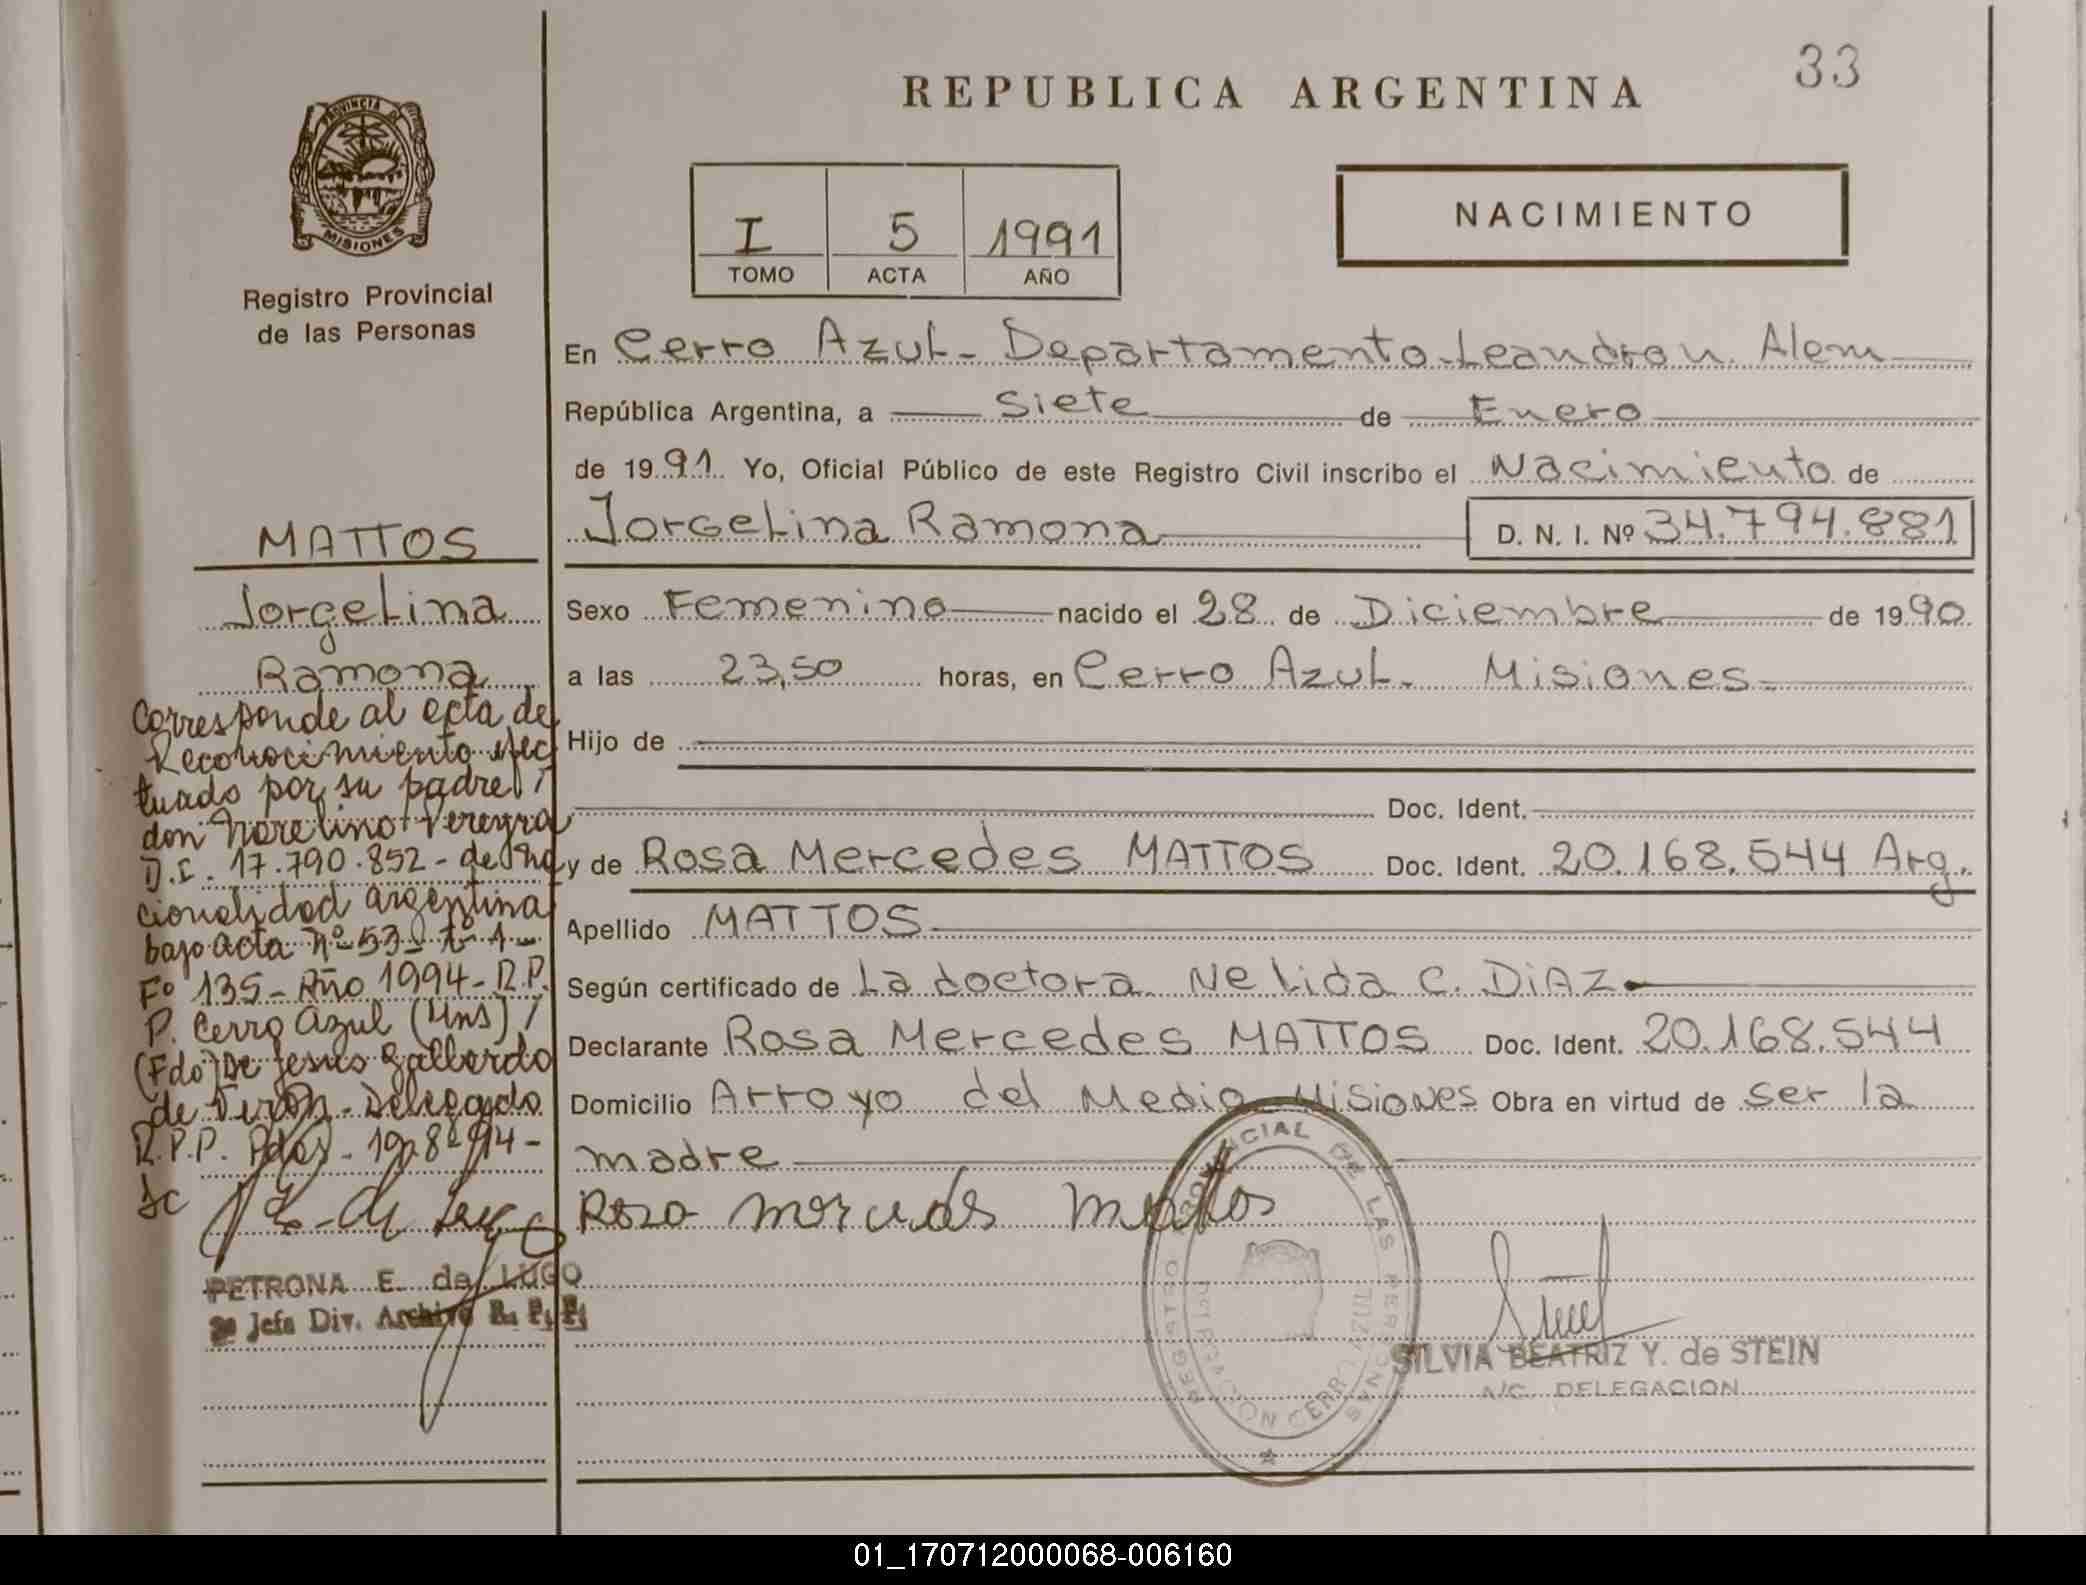 33
REPUBLICA ARGENTINA
PROVINCIA DE
MISIONES
Registro Provincial
de las Personas
I 5 1991
TOMO ACTA AÑO
NACIMIENTO
En Cerro Azul - Departamento Leandro N. Alem
República Argentina, a Siete de Enero
de 1991 Yo, Oficial Público de este Registro Civil inscribo el Nacimiento de
Jorgelina Ramona D. N. I. Nº 34.794.881
Sexo Femenino nacido el 28 de Diciembre de 1990
a las 23,50 horas, en Cerro Azul - Misiones
Hijo de
Doc. Ident.
y de Rosa Mercedes MATTOS Doc. Ident. 20.168.544 Arg.
Apellido MATTOS
Según certificado de La doctora Nelida C. DIAZ
Declarante Rosa Mercedes MATTOS Doc. Ident. 20.168.544
Domicilio Arroyo del Medio Misiones Obra en virtud de ser la
madre
Rosa Mercedes Mattos
SILVIA BEATRIZ Y. de STEIN
A/C. DELEGACION
REGISTRO PROVINCIAL DE LAS PERSONAS
MATTOS
Jorgelina
Ramona
Corresponde al acta de
Reconocimiento efec
tuado por su padre /
don Pereyra
D.I. 17.790.852 - de na
cionalidad argentina
bajo acta Nº 53 - Tº 1 -
Fº 135 - Año 1994 - R.P.
P. Cerro Azul (Mns) /
(Fdo) De Jesus Gallardo
de - Delegado
R.P.P. Pdas - 19-8-94 -
PETRONA E. de LUGO
Jefe Div. Archivo R. P. P.
01_170712000068-006160